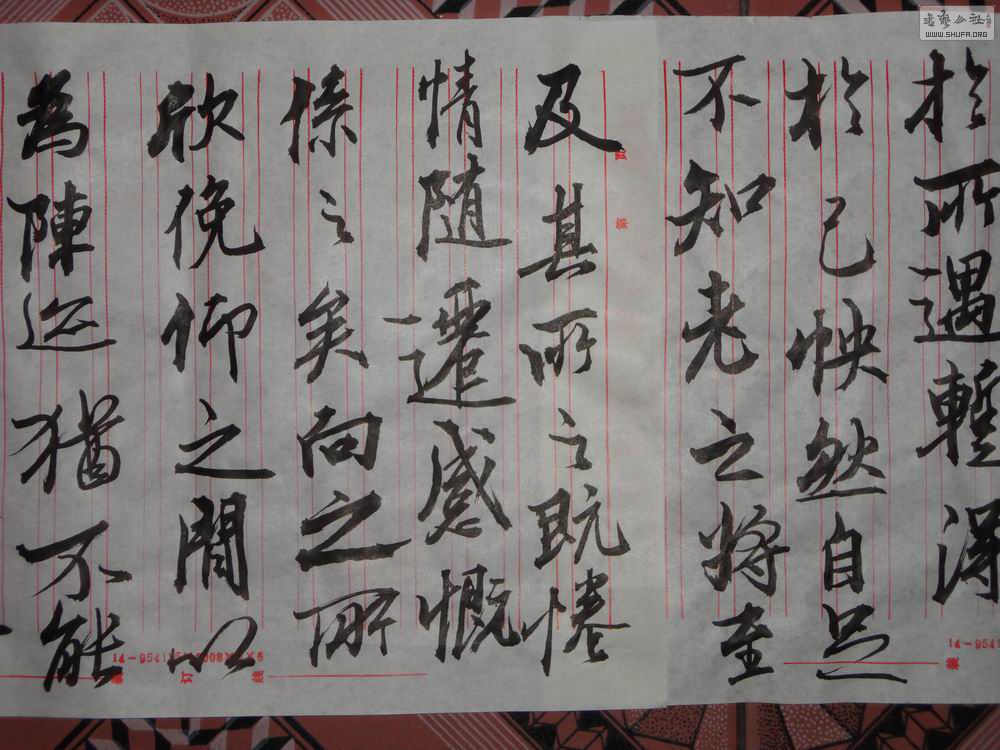 於所遇暫得
於己怏然自足
不知老之將至
及其所之既惓
情随遷感慨
係之矣向之所
欣俛仰之間以
為陳迹猶不能
14-9541
WWW.SHUFA.ORG